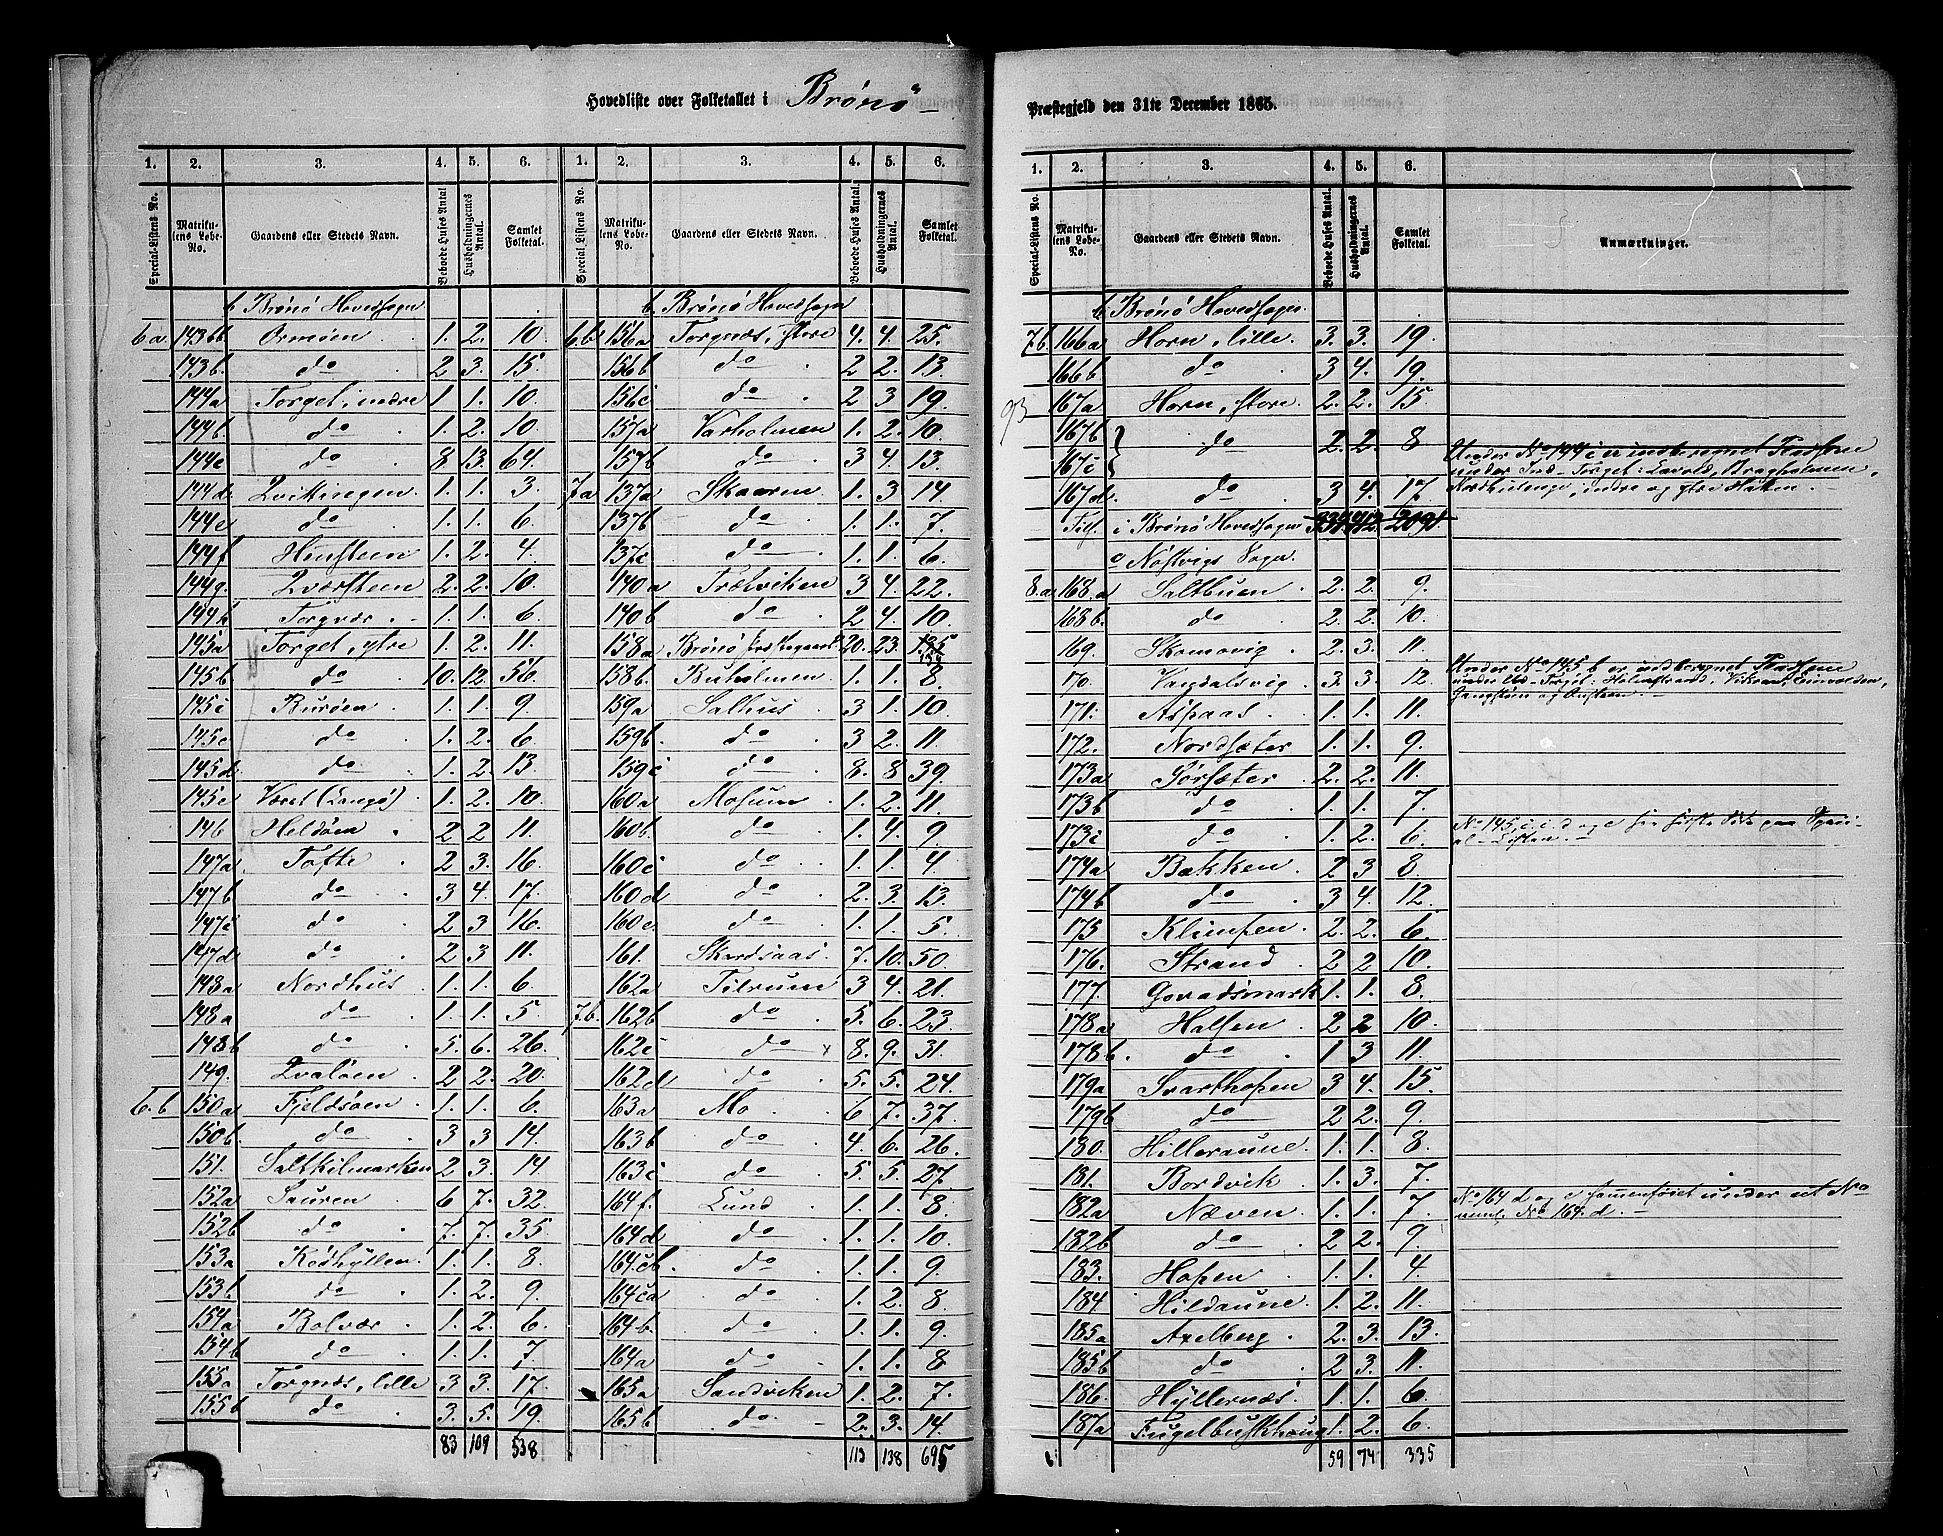 Hovedliste over Folketallet i Brönö
Præstegjeld den 31te December 1865.
1. 2. 3. 4. 5. 6. 1. 2. 3. 4. 5. 6.
Special-Listens No. Matrikulens Løbe-No. Gaardens eller Stedets Navn. Beboede Huses Antal Husholdningernes Antal. Samlet Folketal. Special-Listens No. Matrikulens Løbe-No. Gaardens eller Stedets Navn. Beboede Huses Antal. Husholdningernes Antal. Samlet Folketal.
b Brönö Hovedsogn b Brönö Hovedsogn
6a. 143bb Ormöen 1. 2. 10. 6b 156a Torgnæs, store 4. 4. 25.
143b. do 2 3. 15. 156b do 2 2. 13.
144a Torget, indre 1. 1. 10. 156c do 2 3 19.
144b. do 1. 2. 10. 157a Varholmen 1. 2. 10.
144c do 8. 13. 64. 157b do 3 4. 13.
144d. Qvittingen 1. 1. 3. 7a 137a Skaaren 1. 3 14.
144e do 1. 1. 6. 137b do 1. 1. 7.
144f Hensteen 1. 2. 4. 137c do 1. 1. 6.
144g. Qværsteen 2. 2. 10. 140a Trælviken 3 4. 22.
144h Torgvær 1. 1. 6. 140b do 2 4. 10.
145a Torget, ytre 1. 2. 11. 158a Brönö Præstegaard 20. 23. 134
145b do 10. 12. 56. 158b. Buholmen 1. 1. 8.
145c Buröen 1. 1. 9. 159a Salhus 3 1. 10.
145c do 1. 2. 6. 159b. do 3 2. 11.
145d do 1. 2. 13. 159c do 8. 8. 39.
145e Været (Langö) 1. 2. 10. 160a Mosum 1. 2. 11.
146 Heldöen 2 2 11. 160b. do 1. 4. 9.
147a Tofte 2 3. 16. 160c do 1. 1. 4.
147b do 3 4. 17. 160d do 2. 3. 13.
147c do 2 3 16. 160e do 1. 1. 5.
147d do 2 3. 11. 161. Skardsaas 7. 10. 50.
148a Nordhus 1. 1. 6. 162a Tilrum 3 4. 21.
148a do 1. 1. 5 7b. 162b do 5. 6. 23.
148b do 5. 6. 26. 162c do 8. 9. 31.
149. Qvalöen 2 2. 20. 162d do 5. 5. 24.
6.b 150a Fjeldsöen 1. 1. 6. 163a Mo 6 7. 37.
150b do 3 3 14. 163b do 4. 6. 26.
151. Saltkilmarken 2 3. 14 163c do 5. 5. 27
152a Sauren 6 7. 32. 164f. Lund 1. 1. 8.
152b do 7. 7. 35. 164d do 1. 1. 10.
153a Rödhyllen 1. 1. 8. 164cb do 1. 1. 9.
153b do 1. 2. 9. 164ca do 1. 2. 8.
154a Bolvær 1. 2. 6. 164b do 1. 1. 9.
154b do 1. 1. 7. 164a do 1. 1. 8
155a Torgnæs, lille 3 3. 17. 165a Sandviken 1. 2. 7.
155b do 3. 5. 19. 165b do 2. 3. 14.
83 109 538 113 138 695
1. 2. 3. 4. 5. 6.
Special-Listens No. Matrikulens Løbe-No. Gaardens eller Stedets Navn. Beboede Huses Antal. Husholdningernes Antal. Samlet Folketal. Anmærkninger.
b Brönö Hovedsogn.
7b. 166a Horn, lille 3. 3. 19.
166b do 3 4. 19.
93 167a Horn, store. 2. 2. 15.
167b
167c } do 2. 2. 8
Under No 144c er indberegnet Pladsene
under Ind-Torget: Lavold, Bragholmen,
167d. do 3 4. 17.
Nordhilenge, indre og ytre Hatten.
Tils. i Brönö Hovedsogn 334 412 2091
c Nöstvigs Sogn.
8.a 168.a Saltbuen 2. 2. 9.
168b. do 2 2. 10.
169. Skomovig 2. 3. 11.
170. Vandalsvig 3. 3. 12.
Under No 145b er indberegnet Pladsene
under Ud-Torget: Holmstrand, Vikran,
171. Aspaas 1. 1. 11.
172. Nordsæter 1. 1. 9.
173a Sörsæter 2. 2. 11.
173b do 1. 1. 7.
173c do 1. 2. 6.
174a Bakken 2 3 8.
174b do 3 4. 12.
175 Klimpen 2 2. 6.
176. Strand 2 2 10.
177. Govadsmark 1. 1. 8.
178a Halsen 2 2 10.
178b. do 1. 3 11.
179a Svarthopen 3 4. 15.
179b do 2 2. 9.
180. Hilleraune 1. 1. 8.
181. Bordvik 1. 3. 7.
182a Næven 1. 1. 7.
No 164 d og e sammenföiet under et No
nml. No 164.d.
182b do 2 2. 9.
183. Hopen 1. 1. 4
184 Hildaune 1. 2. 11.
185a Axelberg 2. 3. 13.
185b do 2 3. 11.
186. Hyllernæs 1. 1. 6
187a Fugelbustkhaug 1. 2. 6.
59 74 335